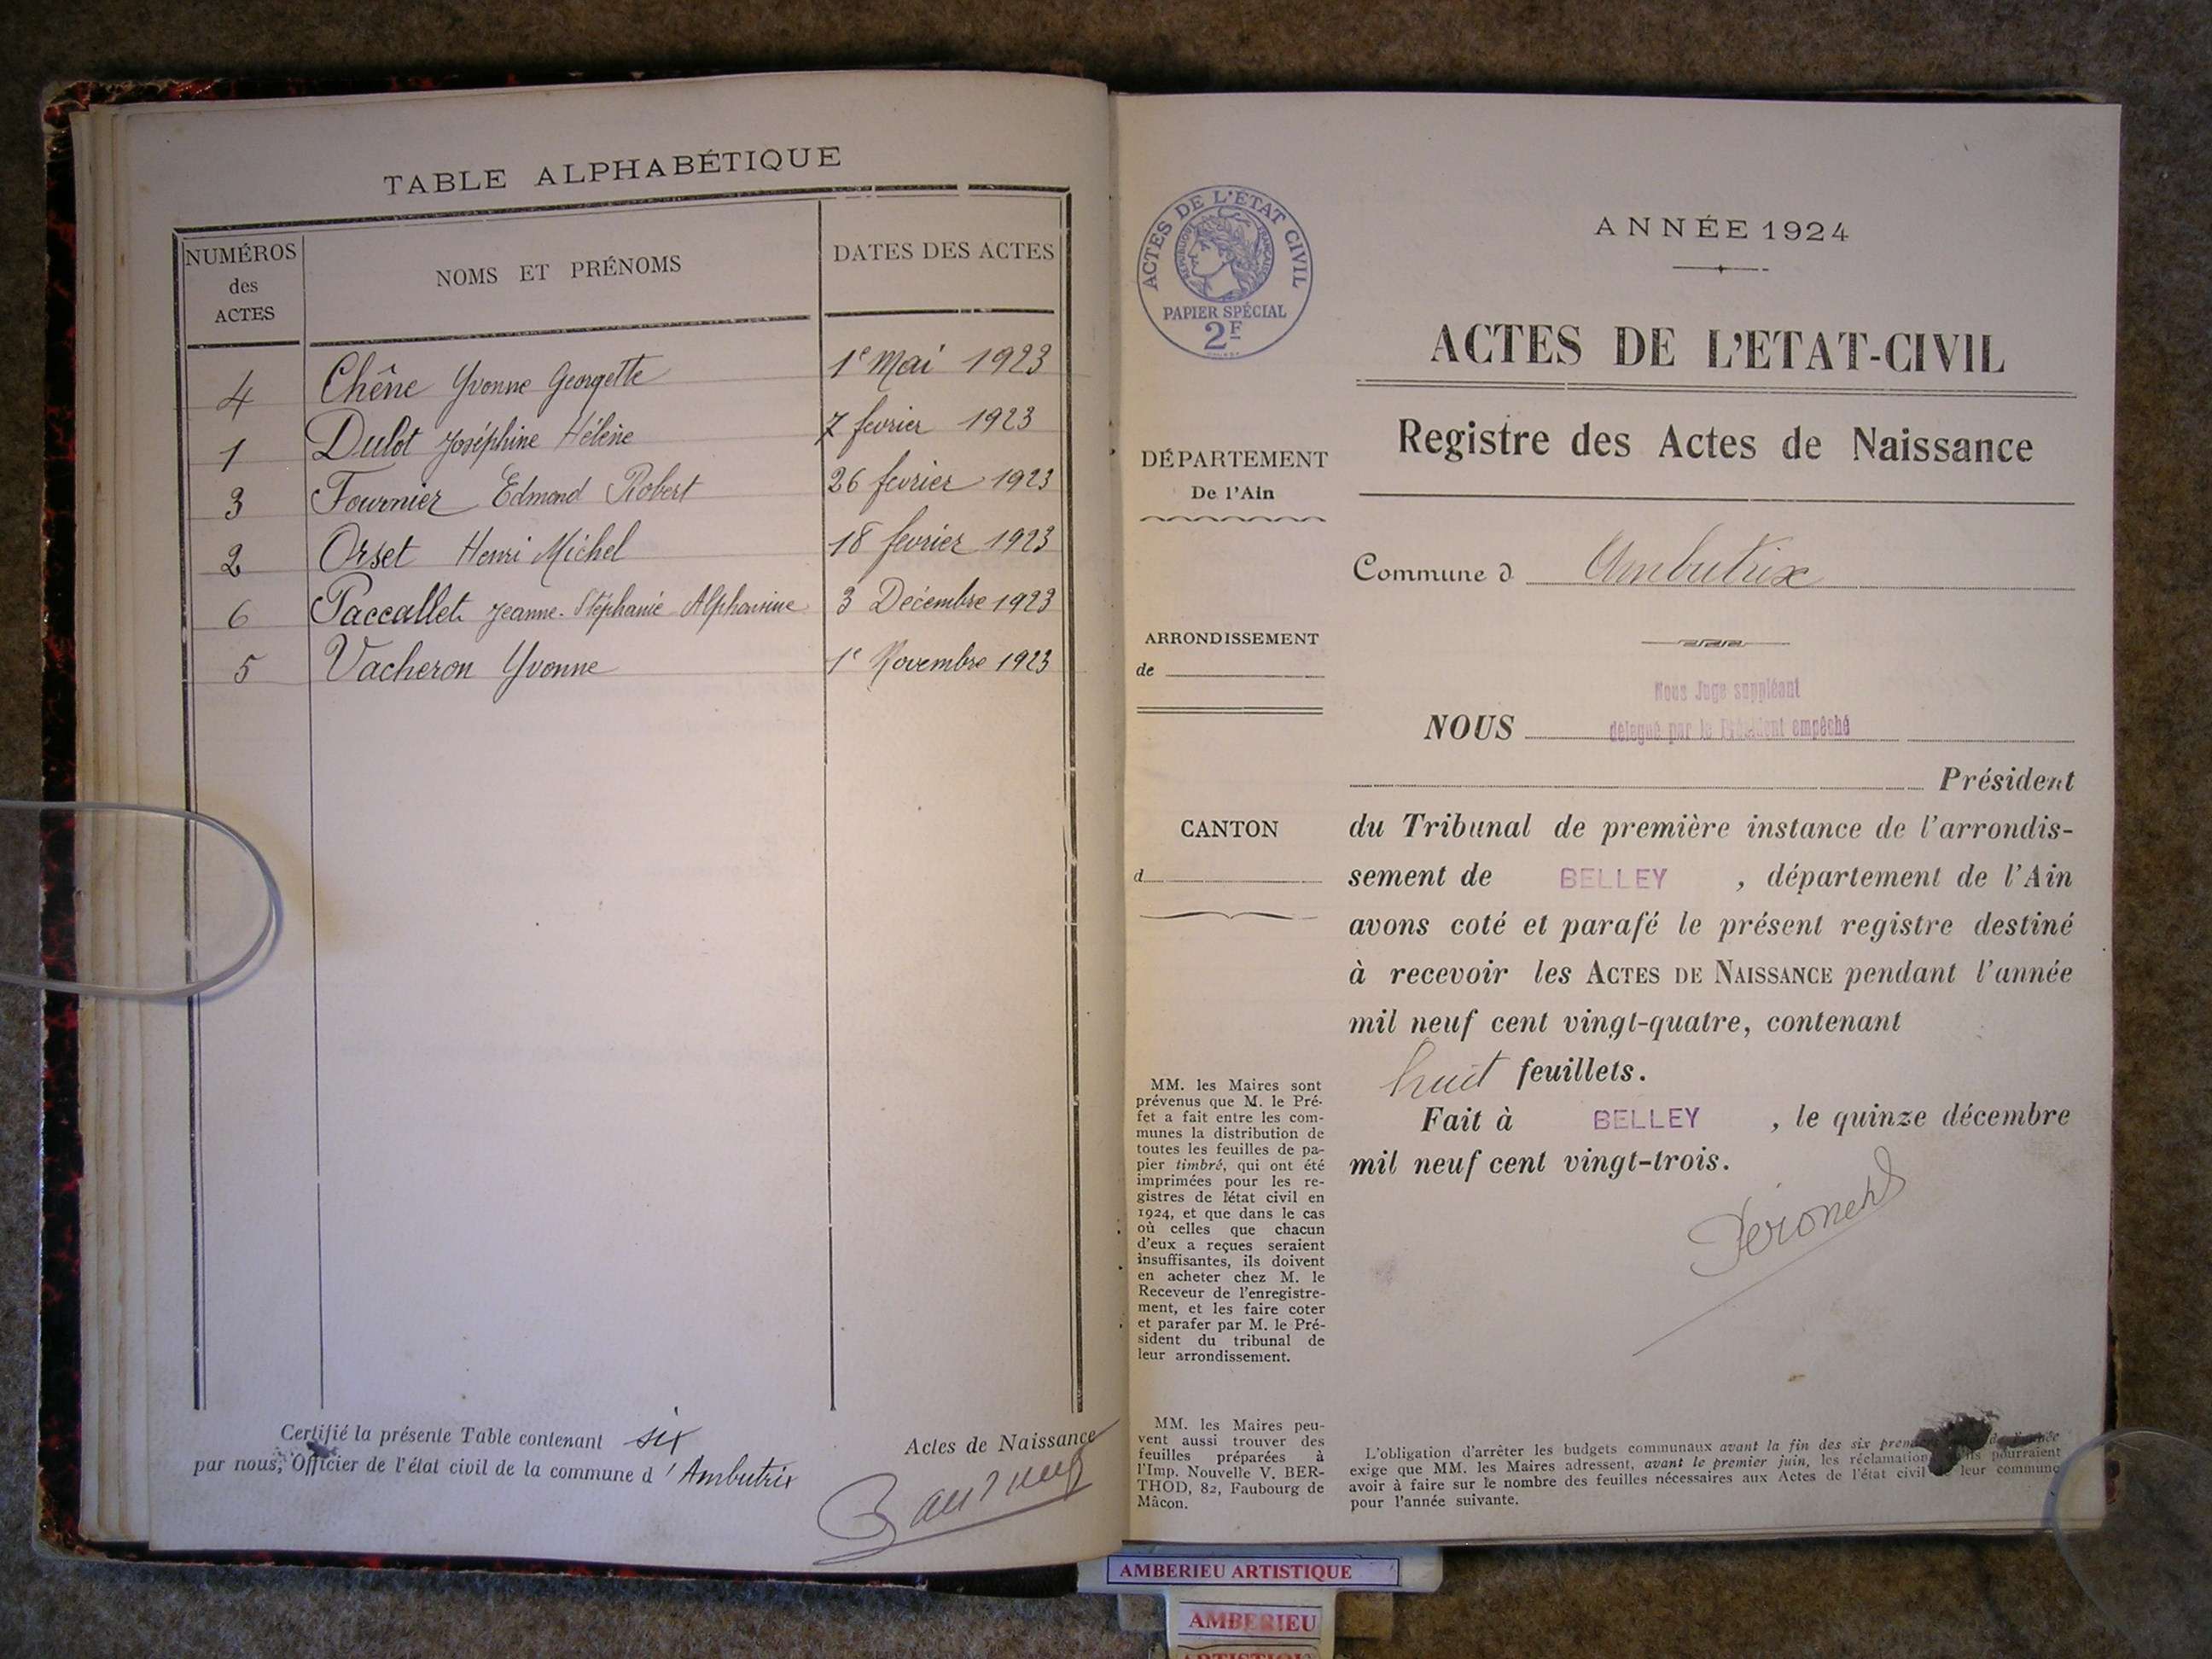 TABLE ALPHABÉTIQUE
NUMÉROS
des
ACTES
NOMS ET PRÉNOMS
DATES DES ACTES
4 Chêne Yvonne Georgette 1e Mai 1923
1 Dulot Joséphine Hélène 7 fevrier 1923
3 Fournier Edmond Robert 26 fevrier 1923
2 Orset Henri Michel 18 fevrier 1923
6 Paccallet Jeanne-Stéphanie Alphonsine 3 Decembre 1923
5 Vacheron Yvonne 1e Novembre 1923
Certifié la présente Table contenant six Actes de Naissance
par nous, Officier de l'état civil de la commune d'Ambutrix
ACTES DE L'ETAT CIVIL
REPUBLIQUE FRANÇAISE
PAPIER SPÉCIAL
2F
DÉPARTEMENT
De l'Ain
ARRONDISSEMENT
de
CANTON
d
MM. les Maires sont
prévenus que M. le Pré-
fet a fait entre les com-
munes la distribution de
toutes les feuilles de pa-
pier timbré, qui ont été
imprimées pour les re-
gistres de l'état civil en
1924, et que dans le cas
où celles que chacun
d'eux a reçues seraient
insuffisantes, ils doivent
en acheter chez M. le
Receveur de l'enregistre-
ment, et les faire coter
et parafer par M. le Pré-
sident du tribunal de
leur arrondissement.
MM. les Maires peu-
vent aussi trouver des
feuilles préparées à
l'Imp. Nouvelle V. BER-
THOD, 82, Faubourg de
Mâcon.
ANNÉE 1924
ACTES DE L'ETAT-CIVIL
Registre des Actes de Naissance
Commune d Ambutrix
Nous Juge suppléant
NOUS délégué par le Président empêché
Président
du Tribunal de première instance de l'arrondis-
sement de BELLEY, département de l'Ain
avons coté et parafé le présent registre destiné
à recevoir les ACTES DE NAISSANCE pendant l'année
mil neuf cent vingt-quatre, contenant
huit feuillets.
Fait à BELLEY, le quinze décembre
mil neuf cent vingt-trois.
L'obligation d'arrêter les budgets communaux avant la fin des six
exige que MM. les Maires adressent, avant le premier juin, les pourraient
avoir à faire sur le nombre des feuilles nécessaires aux Actes de l'état civil leur commune
pour l'année suivante.
AMBERIEU ARTISTIQUE
AMBERIEU
ARTISTIQUE